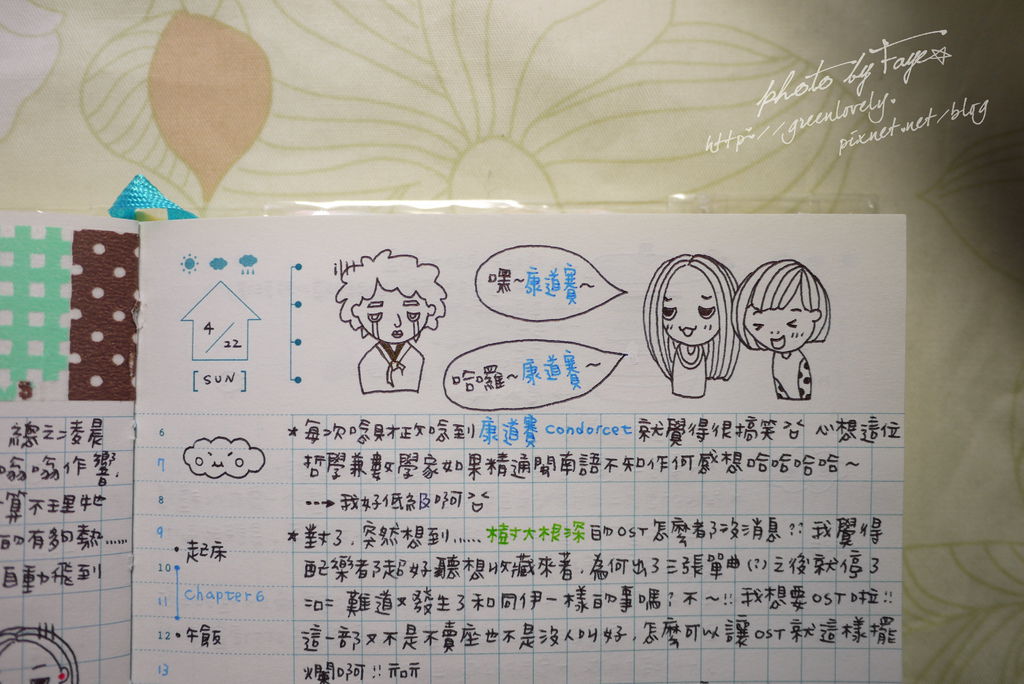 photo by Faye☆
http://greenlovely.
pixnet.net/blog
4/22
[SUN]
嘿~康道賽~
哈囉~康道賽~
6
7
8
9
10
11
12
13
起床
chapter 6
午飯
總之凌晨
嗡嗡作響,
算不理牠
的有夠熱......
自動飛到
★每次唸具才正唸到康道賽condorcet就覺得很搞笑 心想這位
哲學兼數學家如果精通閩南語不知作何感想哈哈哈哈~
---→我好低級啊
★對了,突然想到......樹大根深的OST怎麼都沒消息??我覺得
配樂都超好聽想收藏來著,為何出了三張單曲(?)之後就停了
=口= 難道又發生了和同伊一樣的事嗎?不~!!我想要OST啦!!
這一部又不是不賣座也不是沒人叫好,怎麼可以讓OST就這樣擺
爛啊!!